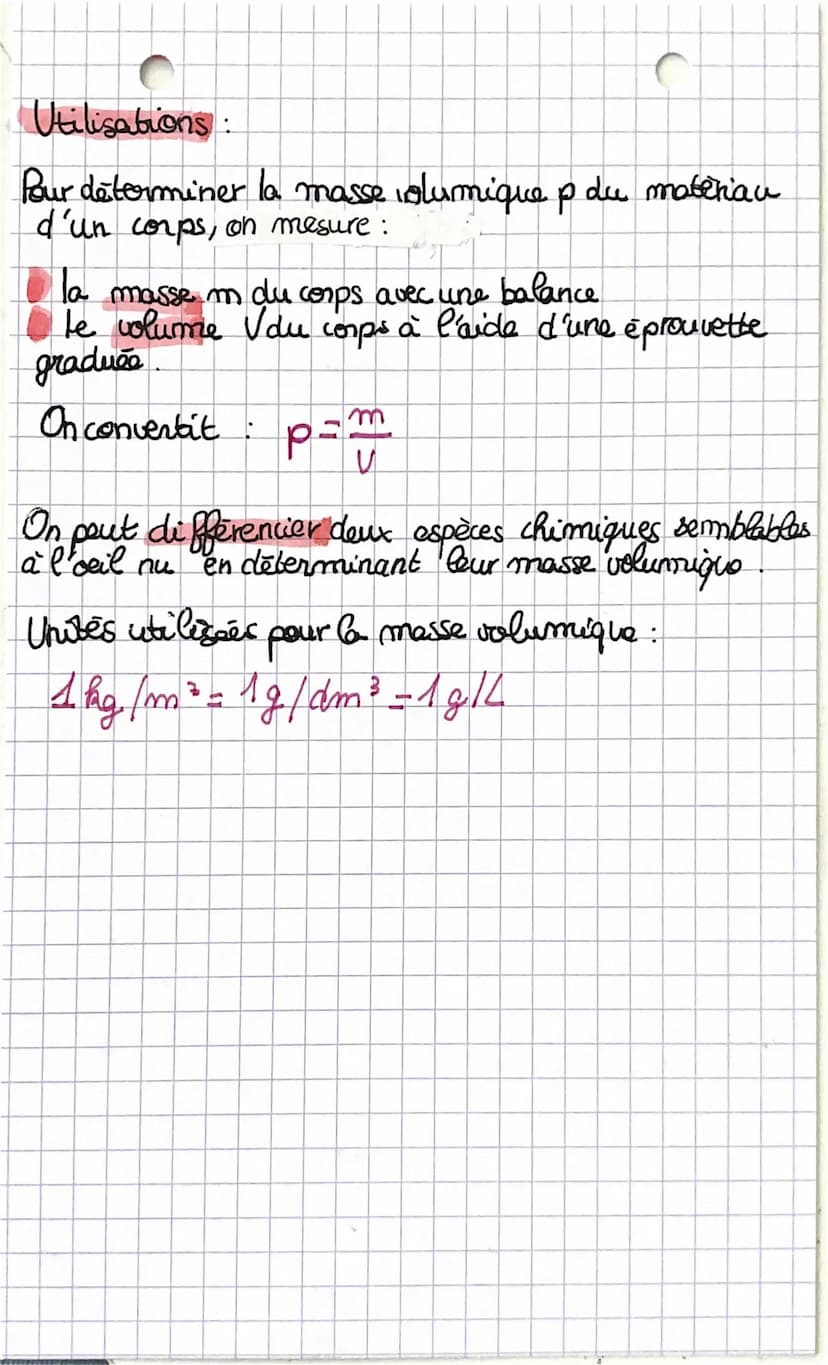 Utilisations :
Pour déterminer la masse volumique ρ du matériau
d'un corps, on mesure :
la masse m du corps avec une balance
le volume V du corps à l'aide d'une éprouvette
graduée.
On convertit : ρ = m/V
On peut différencier deux espèces chimiques semblables
à l'oeil nu en déterminant leur masse volumique.
Unités utilisées pour la masse volumique :
1 kg/m³ = 1g/dm³ = 1g/L